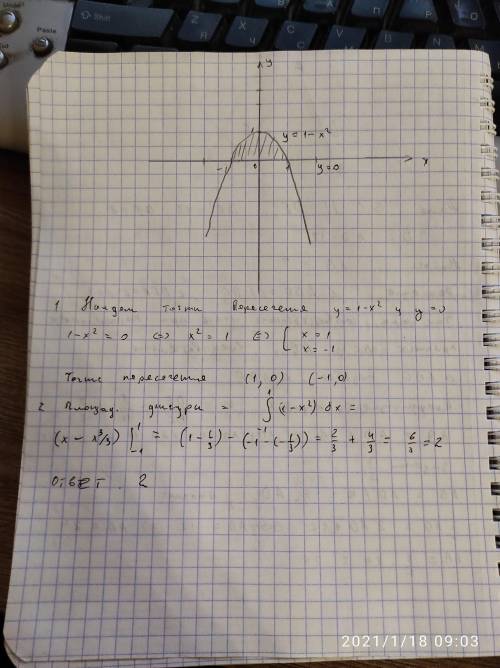 y
1
y = 1 - x²
-1 0 1 y = 0 x
1 Найдем точки пересечения y = 1 - x² и y = 0
1 - x² = 0 (=) x² = 1 (=) [ x = 1
x = -1
Точки пересечения (1, 0) (-1, 0)
2 Площад. фигуры = ∫₋₁¹ (1 - x²) dx =
(x - x³/3) |₋₁¹ = (1 - 1/3) - (-1 - (-1/3)) = 2/3 + 4/3 = 6/3 = 2
Ответ. 2
2021/1/18 09:03